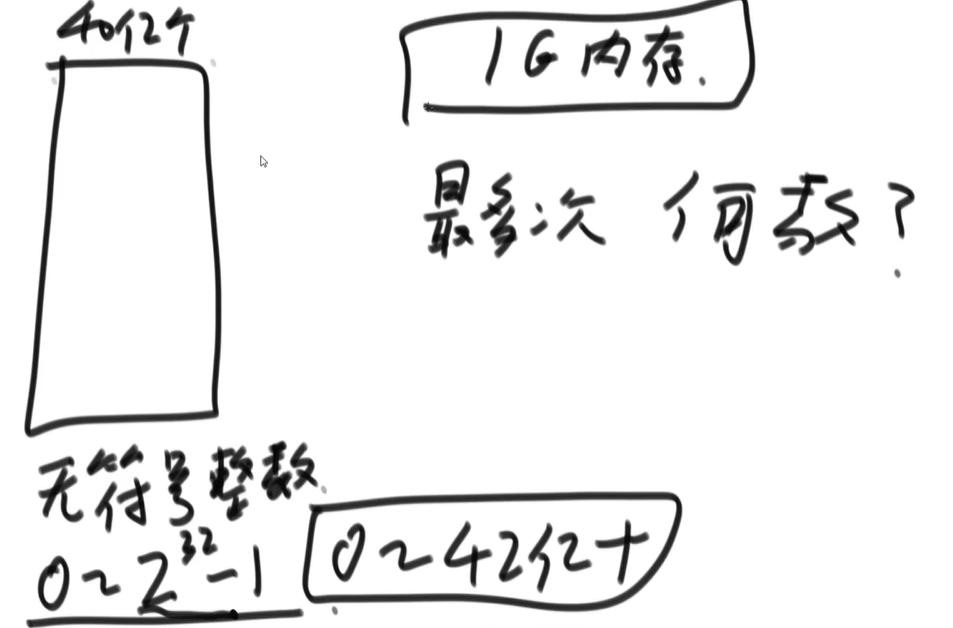 40亿个
1G内存.
最多次 何数?
无符号整数.
0~2³²-1
0~42亿+